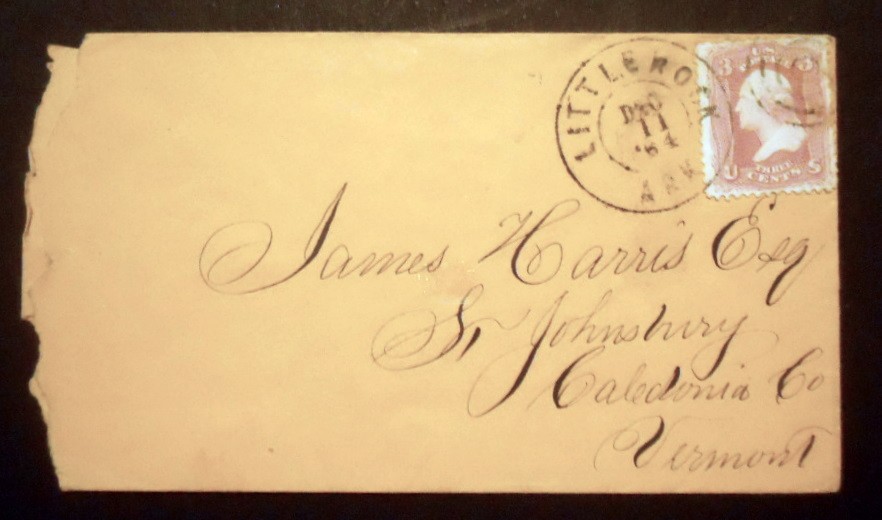 LITTLE ROCK
DEC
11
'64
ARK
3 U.S. 3
U THREE CENTS S
James Harris Esq
St Johnsbury
Caledonia Co
Vermont